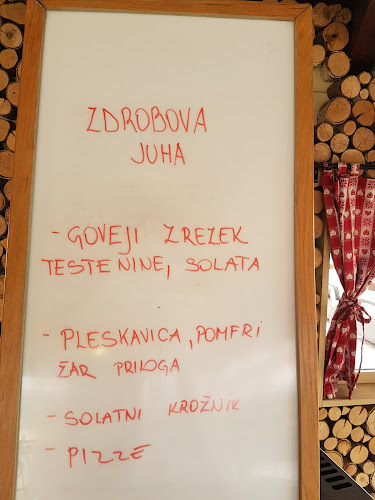 ZDROBOVA
JUHA
- GOVEJI ZREZEK
TESTENINE, SOLATA
- PLESKAVICA, POMFRI
ŽAR PRILOGA
- SOLATNI KROŽNIK
- PIZZE